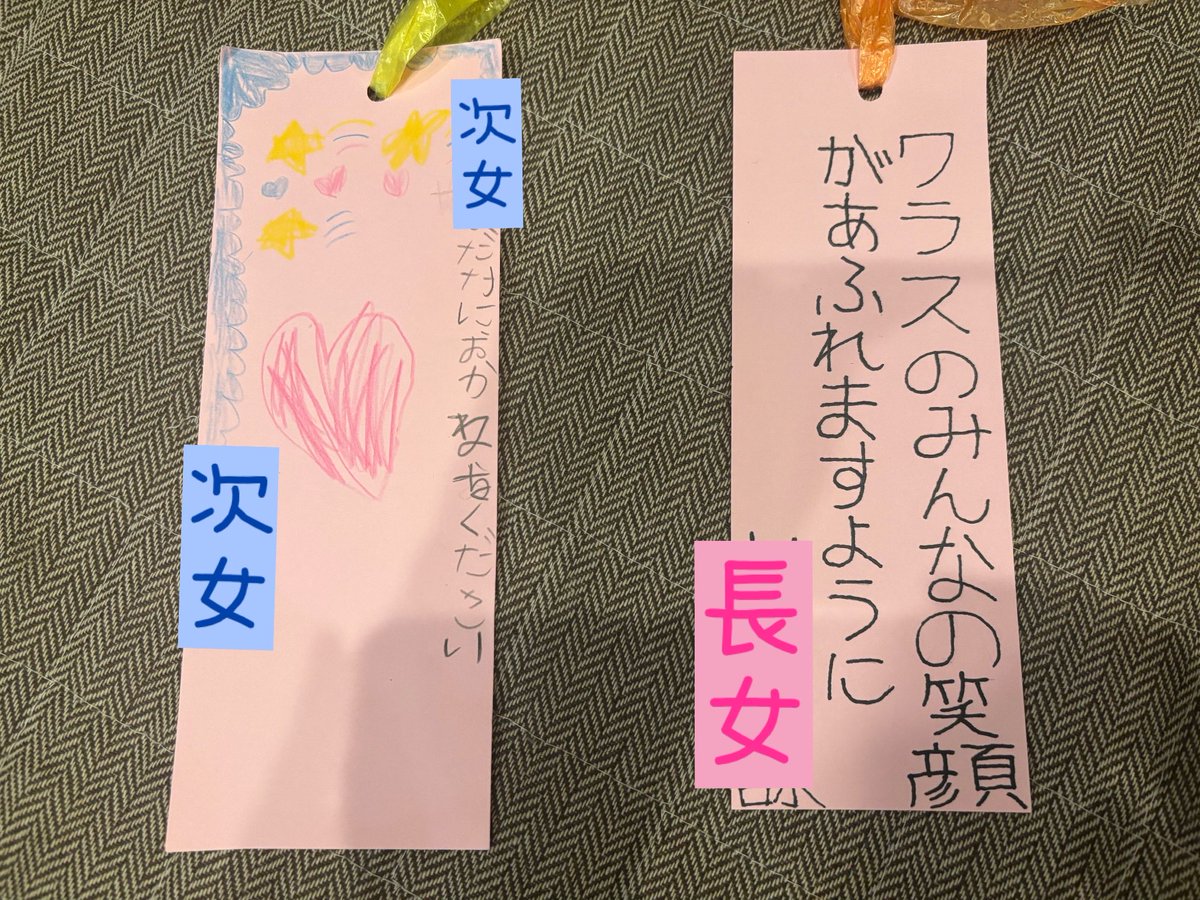 次女
におかねをください
次女
ワラスのみんなの笑顔
があふれますように
長女